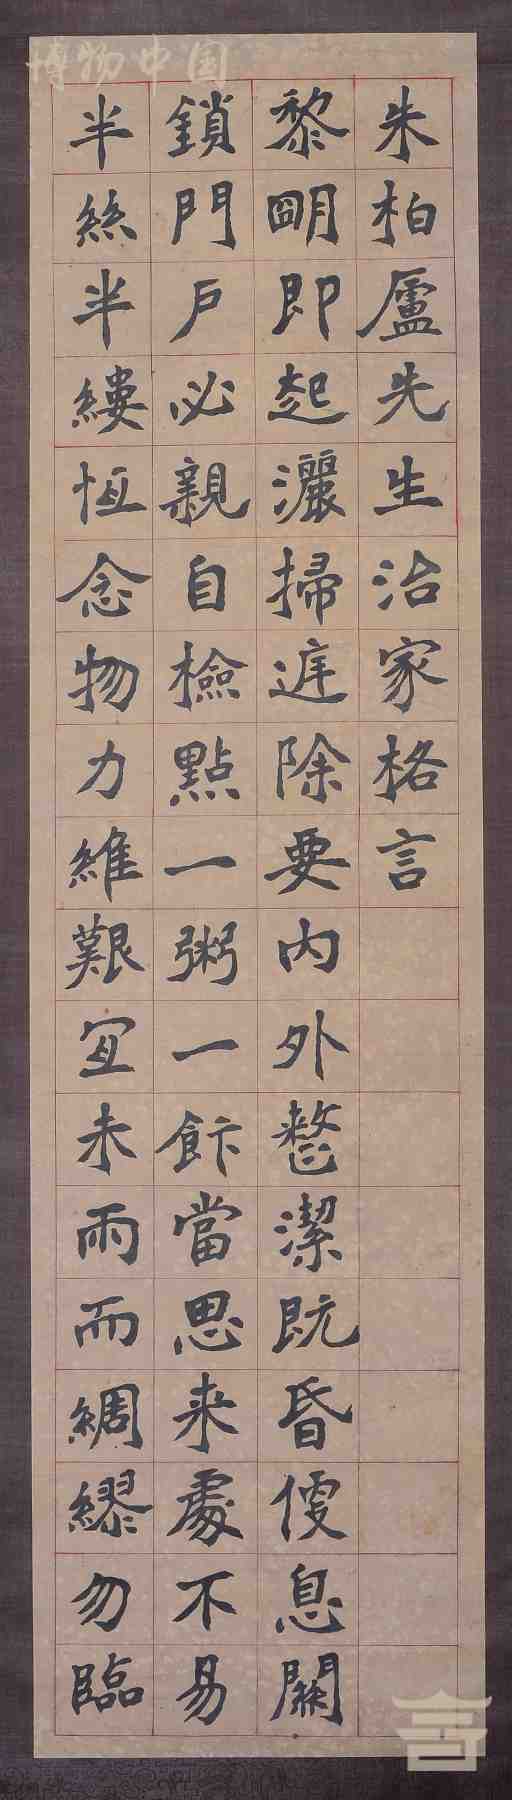 博物中国
朱柏廬先生治家格言
黎明即起灑掃庭除要内外整潔既昏便息關
鎖門户必親自檢點一粥一飰當思来處不易
半絲半縷恆念物力維艱宜未雨而綢繆勿臨